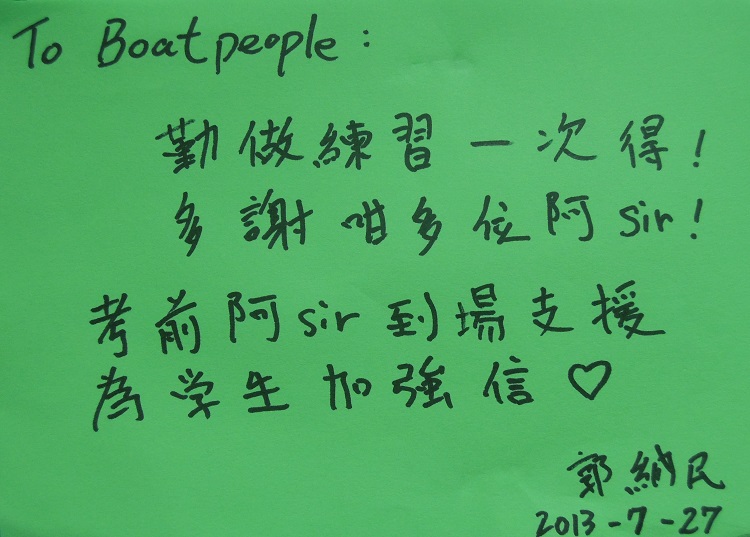 To Boatpeople:
勤做練習一次得!
多謝咁多位阿sir!
考前阿sir到場支援
為学生加強信♡
郭 民
2013-7-27